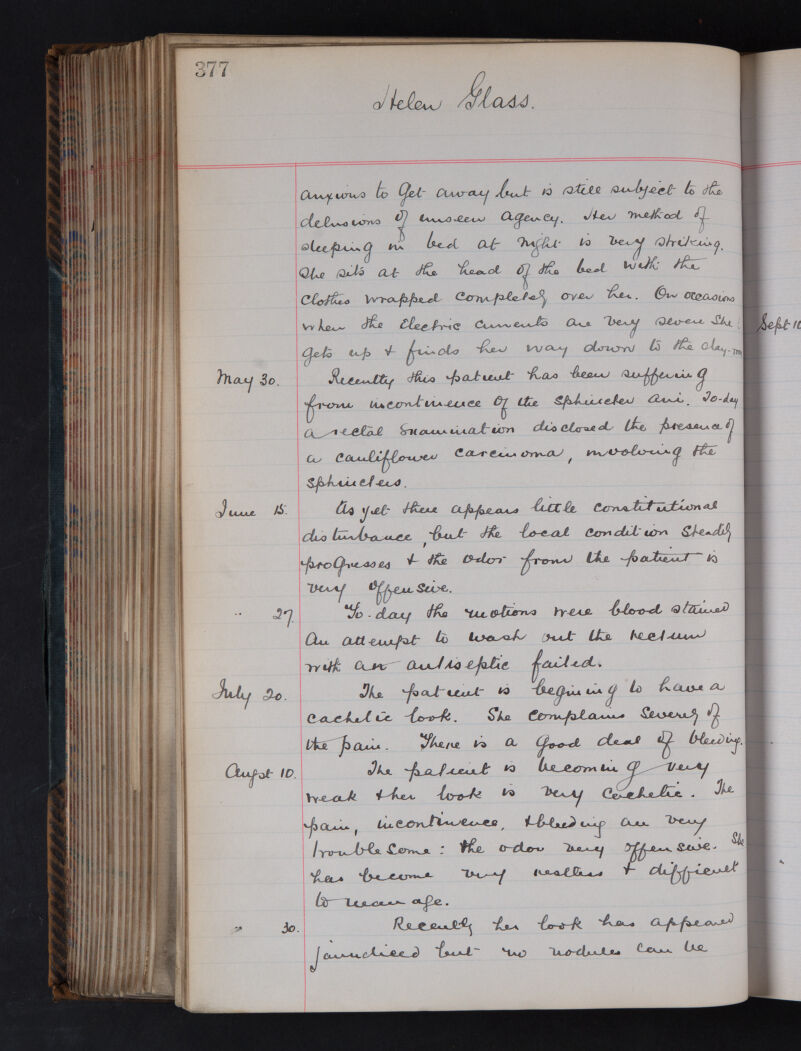 377
Helen Glass.
anxious to get away but is still subject to the
delusions of unseen agency. Her method of
sleeping in bed at night is very striking.
She sits at the head of the bed with the
clothes wrapped completely over her. On occasions
when the electric currents are very severe she
gets up & finds her way down to the day-
May 30. Recently this patient has been suffering
from incontinence of the sphincter ani. To-day
a rectal examination disclosed the presence of
a cauliflower carcinoma, involving the
sphincters.
June 15. As yet there appears little constitutional
disturbance, but the local condition steadily
progresses & the odor from the patient is
very offensive.
" 27. To-day the motions were blood stained
An attempt to wash out the rectum
with an antiseptic failed.
July 20. The patient is begining to have a
cachetic look. She complains severely of
the pain. There is a good deal of bleeding.
Augst 10. The patient is becoming very
weak & her look is very cachetic. The
pain, incontinence, & bleeding are very
troublesome: the odor very offensive. She
has become very restless & difficult
to manage.
" 30. Recently her look has appeared
jaundiced but no nodules can be
Sept 10